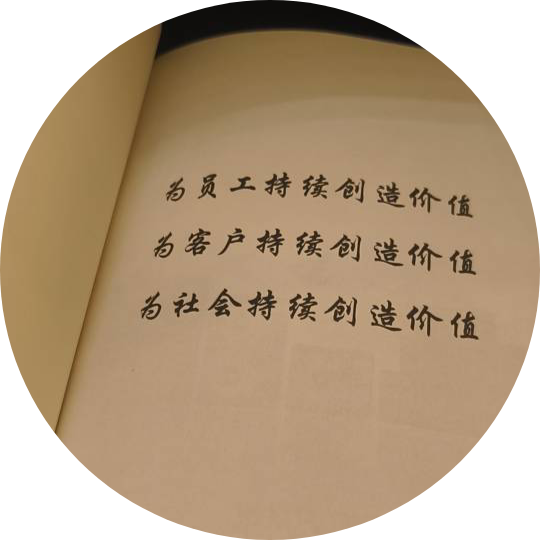 为员工持续创造价值
为客户持续创造价值
为社会持续创造价值